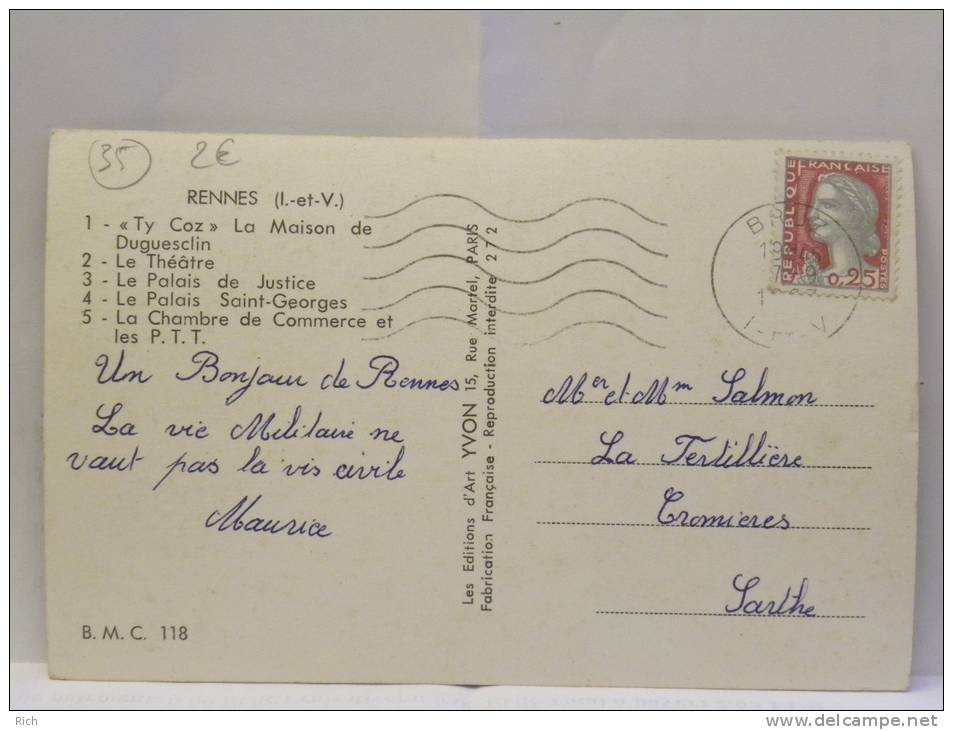 35 2€
RENNES (I.-et-V.)
1 - « Ty Coz » La Maison de
Duguesclin
2 - Le Théâtre
3 - Le Palais de Justice
4 - Le Palais Saint-Georges
5 - La Chambre de Commerce et
les P. T. T.
Un Bonjour de Rennes
La vie Militaire ne
vaut pas la vis civile
Maurice
B. M. C. 118
Les Editions d'Art YVON 15, Rue Martel, PARIS
Fabrication Française - Reproduction interdite 272
REPUBLIQUE
FRANÇAISE
POSTES
0,25
Mer et Mm Salmon
La Tertillière
Cromieres
Sarthe
Rich
www.delcampe.net